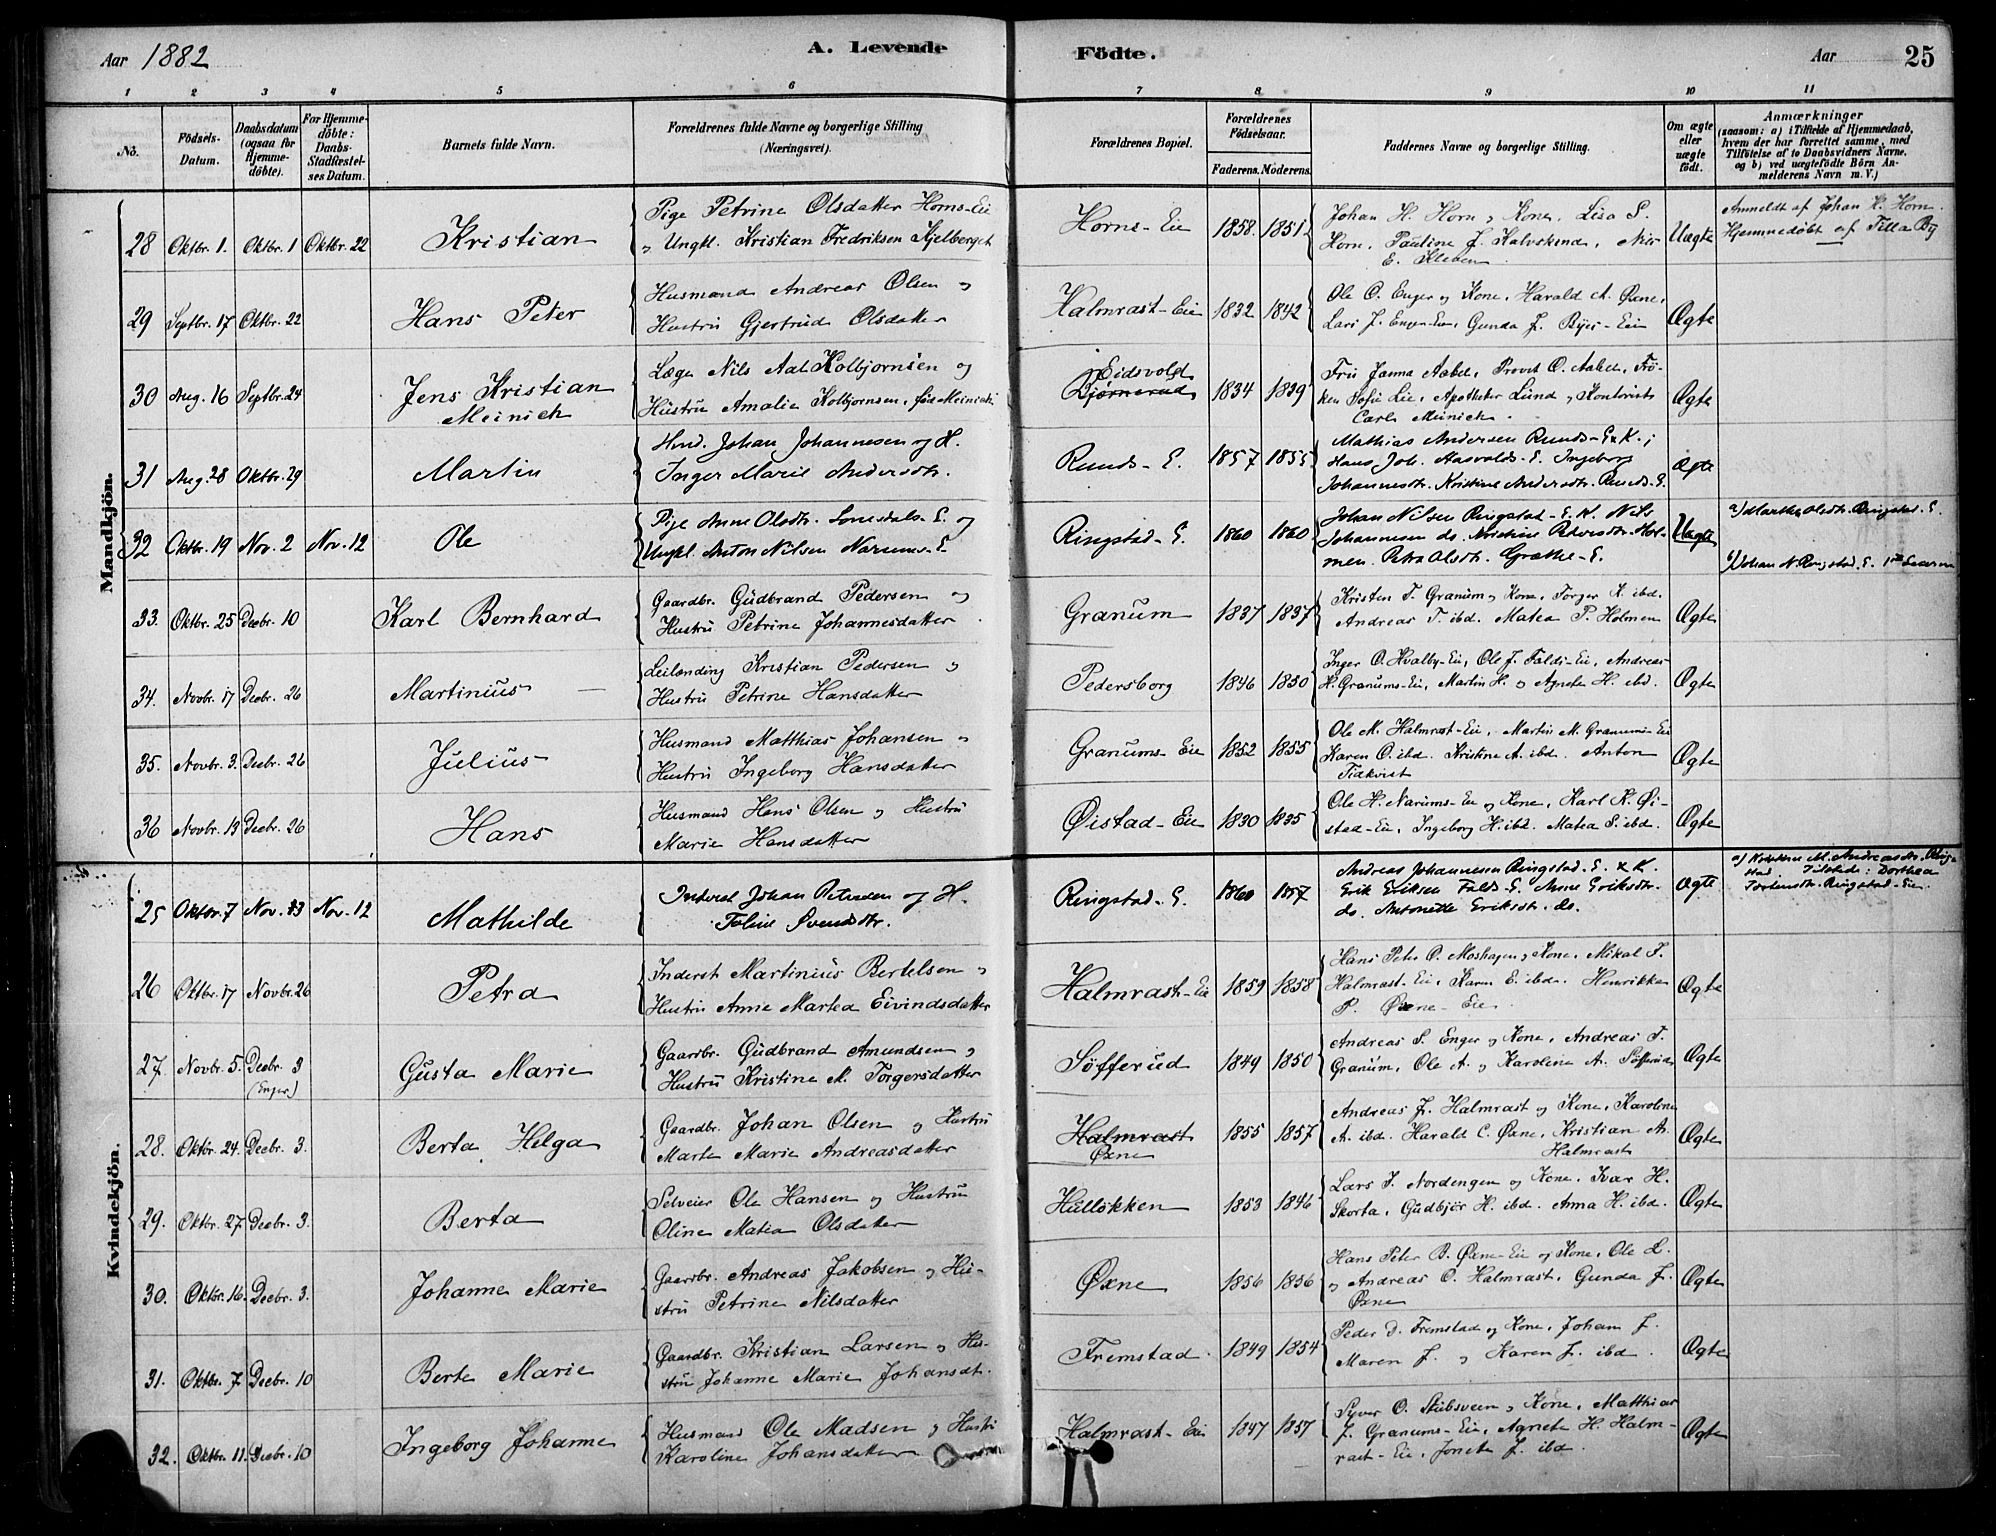 Aar 1882
A. Levende
Födte.
Aar
25
1 2 3 4 5 6 7 8 9 10 11
No.
Födsels-Datum.
Daabsdatum (ogsaa for Hjemmedöbte).
For Hjemmedöbte: Daabs-Stadfæstelses Datum.
Barnets fulde Navn.
Forældrenes fulde Navne og borgerlige Stilling (Næringsvei).
Forældrenes Bopæl.
Forældrenes Födselsaar.
Faderens. Moderens.
Faddernes Navne og borgerlige Stilling.
Om ægte eller uægte födt.
Anmærkninger
(saasom: a) i Tilfælde af Hjemmedaab, hvem der har forrettet samme, med Tilföielse af to Daabsvidners Navne, og b) ved uægtefödte Börn Anmelderens Navn m. V.)
Mandkjön.
28 Oktbr. 1. Oktbr. 1 Oktbr. 22 Kristian
Pige Petrine Olsdatter Horns-Eie
og Ungkl. Kristian Fredriksen Kjelberget
Horns-Eie 1858. 1851
Johan H. Horn og Kone, Lisa S.
Horn, Pauline J. Kalvskind,
E. Kleben
Uægte
Anmeldt af Johan H. Horn.
Hjemmedøbt af Tilla By
29 Septbr. 17 Oktbr. 22 Hans Peter
Husmand Andreas Olsen og
Hustru Gjertrud Olsdatter
Halmrast-Eie 1832 1842
Ole O. Enger og Kone, Harald A. Øxne,
Lars J. Enger-Eie, Gunda J. Byes-Eie
Ægte
30 Aug. 16 Septbr. 24 Jens Kristian
Meinich
Læge Nils Aal Kolbjørnsen og
Hustru Amalie Kolbjørnsen, fød Meinich
Eidsvold
Bjørnerud 1834 1839
Fru Janna Aabel, Provst O. Aabel, Frø-
ken Sofie Lie, Apotheker Lund og Kontorist
Carl Meinich
Ægte
31 Aug. 28 Oktbr. 29 Martin
Hmd. Johan Johannesen og H.
Inger Marie Andersdtr.
Runds-E. 1857 1855
Mathias Andersen Runds-E & K.;
Hans Joh. Aasvalds-E. Ingeborg
Johannesdtr. Kristine Andersdtr. Runds-E.
Ægte
32 Oktbr. 19 Nov. 2 Nov. 12 Ole
Pige Anne Olsdtr. Lonesdals-E. og
Ungkl. Anton Nilsen Narums-E.
Ringstad-E. 1860 1860
Johan Nilsen Ringstad-E. K. Nils
Johannesen do. Kristine Petersdtr. Hol-
men. Petra Olsdtr. Grætte-E.
Uægte
a) Marthe Olsdtr. Ringstad-E.
b) Johan N. Ringstad-E.
33. Oktbr. 25 Decbr. 10 Karl Bernhard
Gaardbr. Gudbrand Pedersen og
Hustru Petrine Johannesdatter
Granum 1837 1837
Kristen T. Granum og Kone, Torger K. ibd.
Andreas T. ibd. Matea P. Holmen
Ægte
34. Novbr. 17 Decbr. 26 Martinius
Leilending Kristian Pedersen og
Hustru Petrine Hansdatter
Pedersborg 1846 1850
Inger O. Hvalby-Eie, Ole J. Falds-Eie, Andreas
H. Granums-Eie, Martin H. og Agnete H. ibd.
Ægte
35. Novbr. 3. Decbr. 26 Julius
Husmand Matthias Johansen og
Hustru Ingeborg Hansdatter
Granums-Eie 1852 1855
Ole M. Halmrast-Eie, Martin M. Granums-Eie
Karen O. ibd. Kristine A. ibd. Anton
Tidkvist
Ægte
36 Novbr. 13 Decbr. 26 Hans
Husmand Hans Olsen og Hustru
Marie Hansdatter
Øistad-Eie 1830 1835
Ole H. Narums-Eie og Kone, Karl K. Øi-
stad-Eie, Ingeborg H. ibd. Matea S. ibd.
Ægte
Kvindekjön.
25 Oktbr. 7 Nov. 13 Nov. 12 Mathilde
Inderst Johan Petersen og H.
Toline Svendsdtr.
Ringstad-E. 1860 1857
Andreas Johannesen Ringstad-E. & K.
Erik Eriksen Falds-E. Anne Eriksdtr.
do. Antonette Eriksdtr. do.
Ægte
a) Kristine M. Andreasdtr. Ring-
stad. Tilstede: Dorthea
Torstensdtr. Ringstad-Eie.
26 Oktbr. 17 Novbr. 26 Petra
Inderst Martinius Bertelsen og
Hustru Anne Martea Eivindsdatter
Halmrast-Eie 1859 1858
Hans Peter O. Moshagen og Kone, Mikal F.
Halmrast-Eie, Karen E. ibd. Henrikke
P. Øxne-Eie
Ægte
27. Novbr. 5. Decbr. 3 (Enger) Gusta Marie
Gaardbr. Gudbrand Amundsen og
Hustru Kristine M. Torgersdatter
Søfferud 1849 1850
Andreas S. Enger og Kone, Andreas T.
Granum, Ole A. og Karoline A. Søfferud
Ægte
28. Oktbr. 24. Decbr. 3. Berta Helga
Gaardbr. Johan Olsen og Hustru
Marte Marie Andreasdatter
Halmrast
Øxne 1855 1857
Andreas J. Halmrast og Kone, Karoline
A. ibd. Harald C. Øxne, Kristian A.
Halmrast
Ægte
29. Oktbr. 27. Decbr. 3. Berta
Selveier Ole Hansen og Hustru
Oline Matea Olsdatter
Hulløkken 1853 1846
Lars J. Nordengen og Kone, Ivar H.
Skorta, Gudbjør H. ibd. Anna H. ibd.
Ægte
30. Oktbr. 16. Decbr. 3. Johanne Marie
Gaardbr. Andreas Jakobsen og Hu-
stru Petrine Nilsdatter
Øxne 1856 1856
Hans Peter B. Øxne-Eie og Kone, Ole L.
og Andreas O. Halmrast, Gunda J.
Øxne
Ægte
31. Oktbr. 7 Decbr. 10 Berte Marie
Gaardbr. Kristian Larsen og Hu-
stru Johanne Marie Johansdt.
Fremstad 1849 1854
Peder D. Fremstad og Kone, Johan J.
Maren J. og Karen J. ibd.
Ægte
32. Oktbr. 11. Decbr. 10 Ingeborg Johanne
Husmand Ole Madsen og Hustru
Karoline Johansdatter
Halmrast-Eie 1847 1857
Syver O. Stubsveen og Kone, Matthias
J. Granums-Eie, Agnete H. Halm-
rast-Eie, Jonette J. ibd.
Ægte